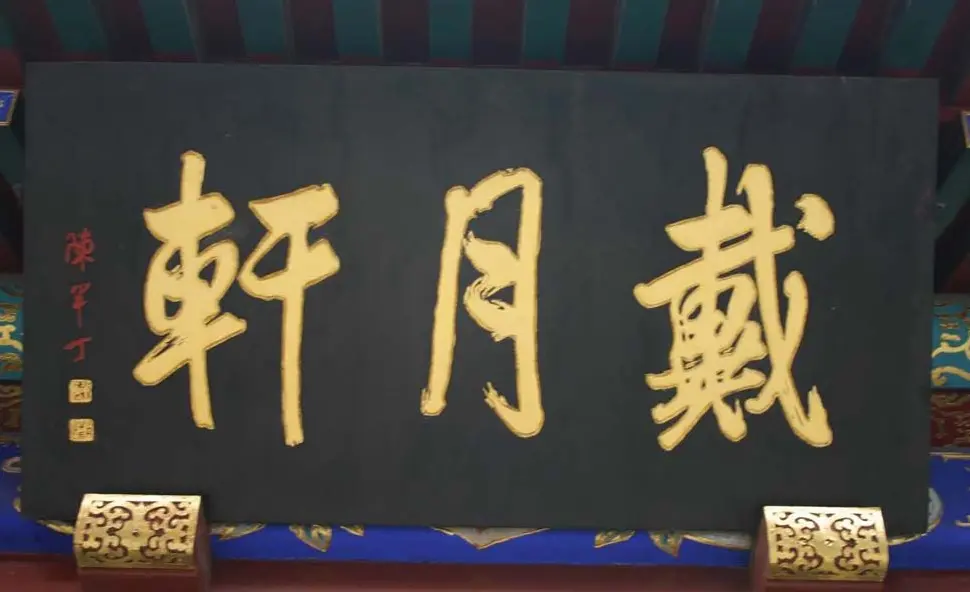 戴月軒
陳半丁